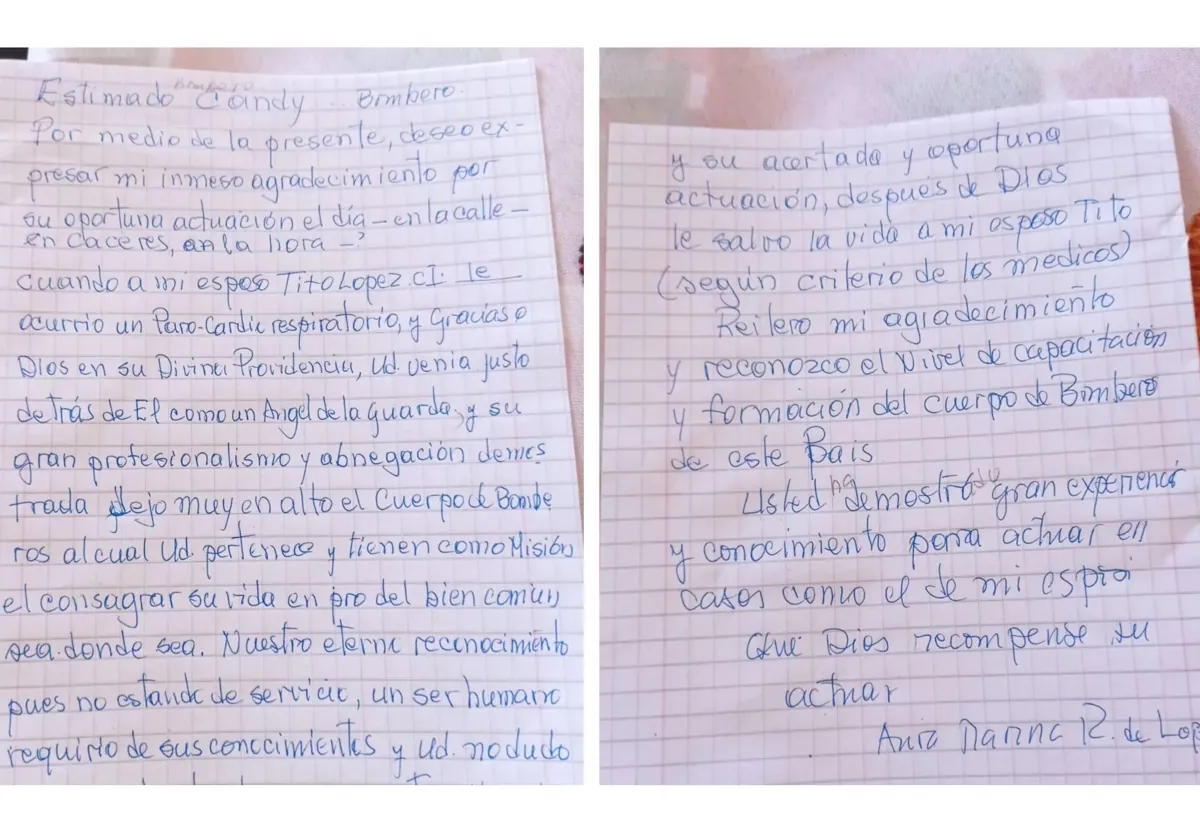 Estimado Candy Bombero.
Bombero
Por medio de la presente, deseo ex-
presar mi inmeso agradecimiento por
su oportuna actuación el día - en la calle -
en Caceres, an la hora -
cuando a mi esposo Tito Lopez CI. le
ocurrio un Paro-Cardic respiratorio, y Gracias a
Dios en su Divina Providencia, Ud. venia justo
detrás de El como un Angel de la guarda, y su
gran profesionalismo y abnegación demos
trada dejo muy en alto el Cuerpo de Bombe
ros al cual Ud. pertenece y tienen como Misión
el consagrar su vida en pro del bien comun
sea donde sea. Nuestro eterno reconocimiento
pues no estando de servicio, un ser humano
requirio de sus conocimientos y Ud. no dudo
y su acertada y oportuna
actuación, después de Dios
le salvo la vida a mi esposo Tito
(según criterio de los medicos)
Reitero mi agradecimiento
y reconozco el Nivel de capacitación
y formación del cuerpo de Bombero
de este Pais
Usted ha demostrado gran experienci
y conocimiento para actuar en
casos como el de mi esposo
Que Dios recompense su
actuar
R. de Lop